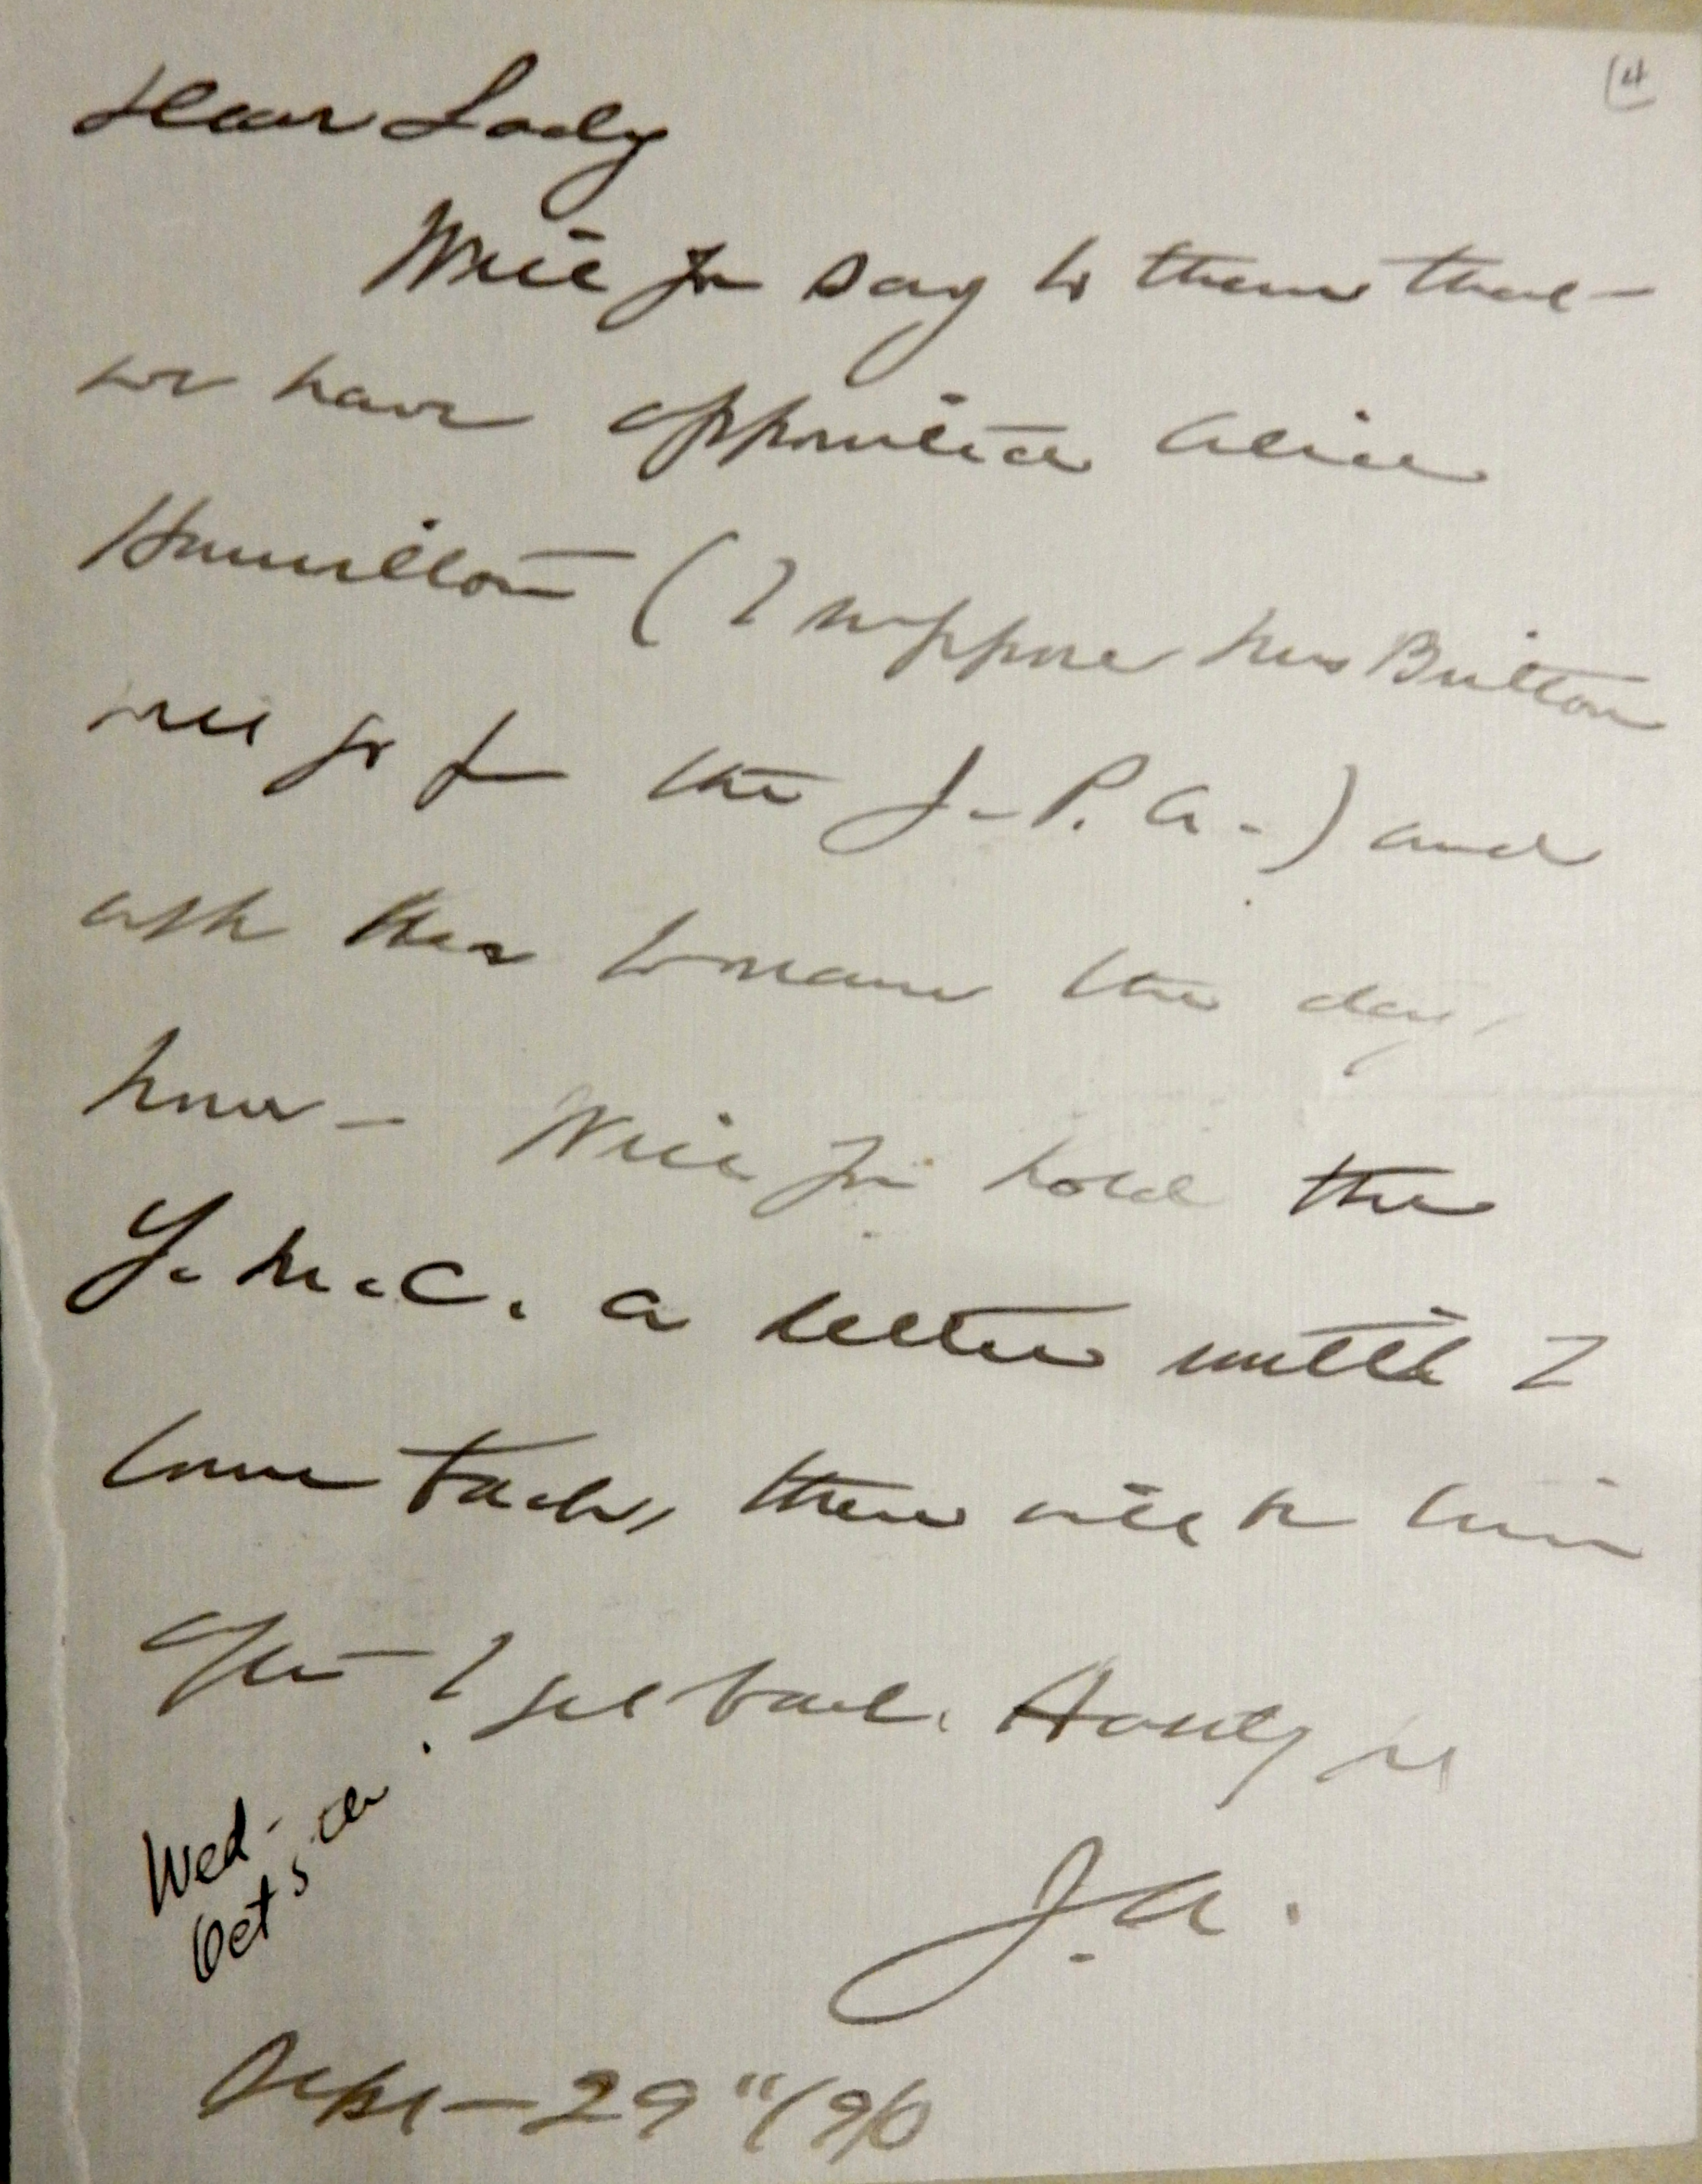 Dear Lady
Will you say to them that
we have appointed Alice
Hamilton (I suppose Mrs Britton
will go for the J. P. A.) and
ask them to name the day,
hour - Will you hold the
Y. M. C. a letter until I
come back, there will be time
after I get back. Hastily yrs
J. A.
Wed-
Oct 5
Sept - 29"/910